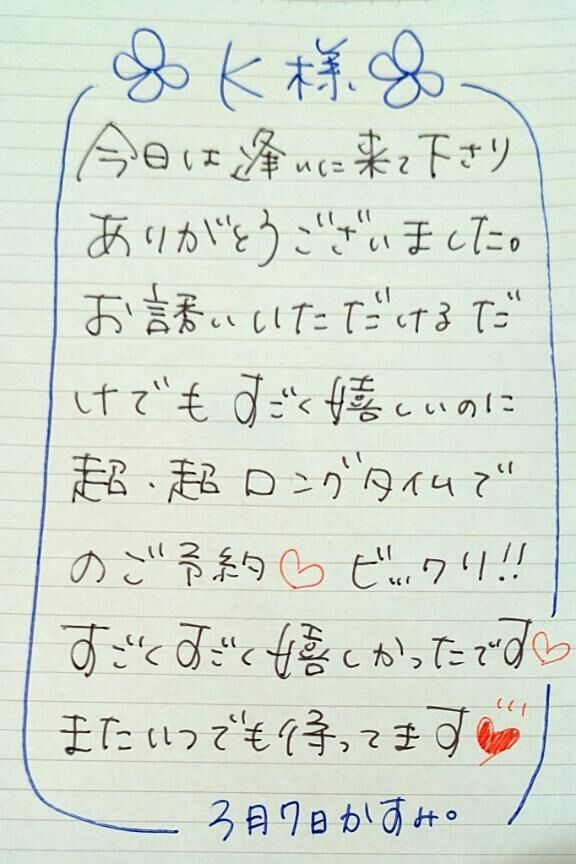 K様
今日は逢いに来て下さり
ありがとうございました。
お誘いいただけるだ
けでもすごく嬉しいのに
超・超ロングタイムで
のご予約♡ビックリ!!
すごくすごく嬉しかったです♡
またいつでも待ってます♥
3月7日かすみ。